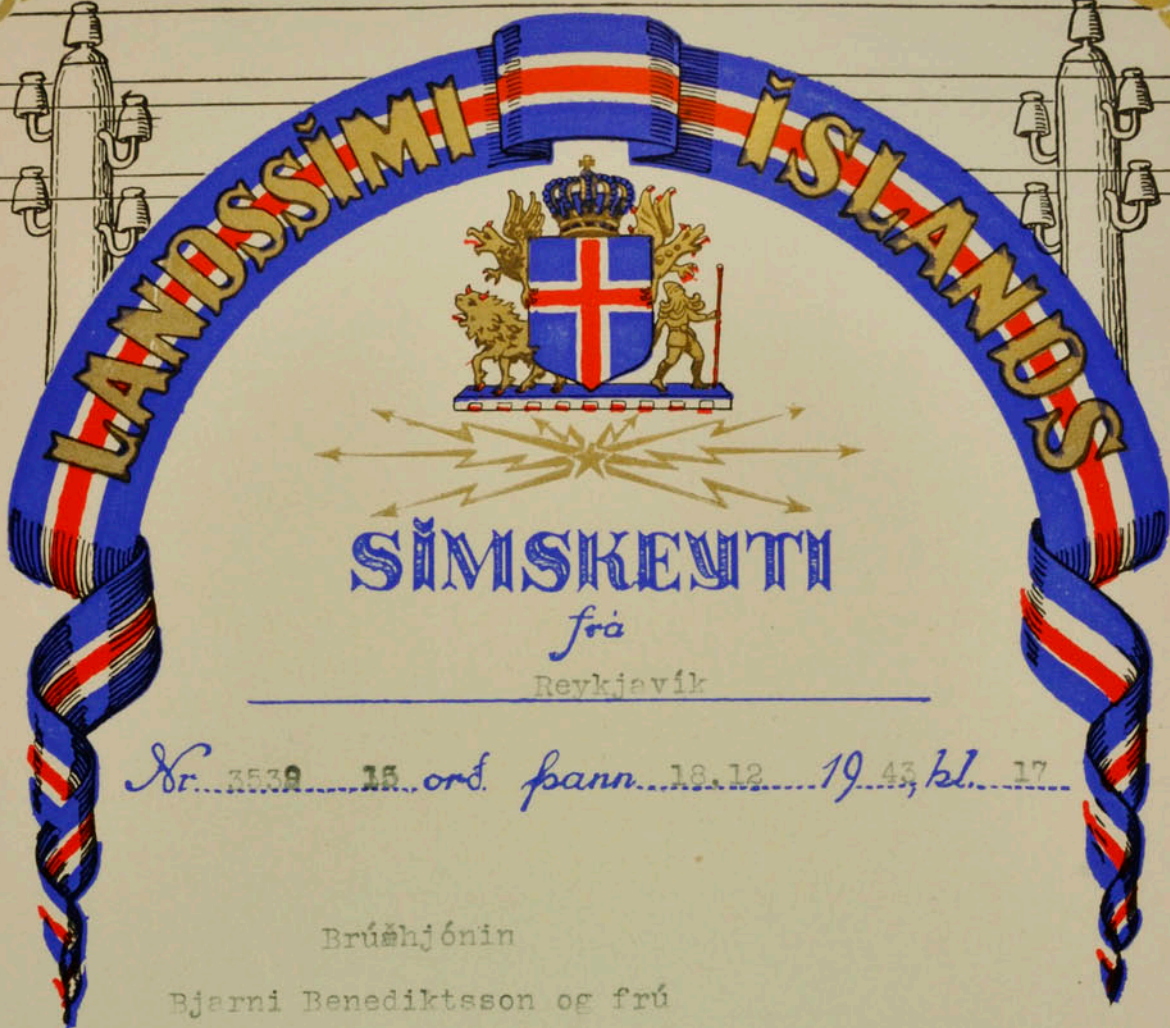 LANDSSÍMI ÍSLANDS
SÍMSKEYTI
frá
Reykjavík
Nr. 3539 15 orð. þann 18.12 1943, kl. 17
Brúðhjónin
Bjarni Benediktsson og frú